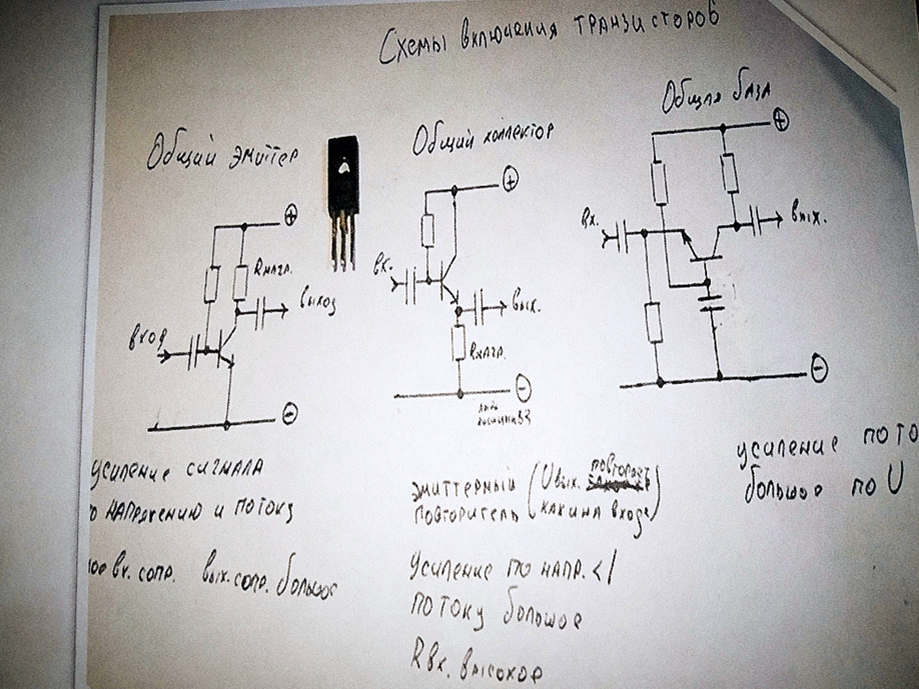 Схемы включения транзисторов
Общий эмиттер
+
Rнагр.
вход
выход
−
усиление сигнала
о напряжению и потоку
ое вх. сопр. вых. сопр. большое
Общий коллектор
+
вх.
вых.
Rнагр.
−
эмиттерный повторитель (Uвых. повторяет как и на входе)
Усиление по напр. <1
потоку большое
Rвх. высокое
Общая база
+
вх.
вых.
−
усиление по то
большое по U